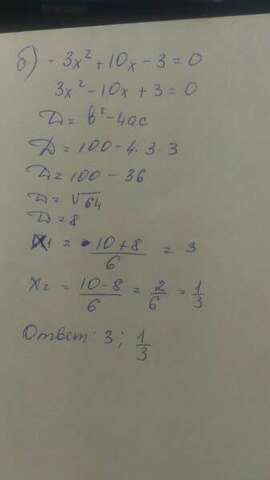 б) - 3x² + 10x - 3 = 0
3x² - 10x + 3 = 0
D = b² - 4ac
D = 100 - 4·3·3
D = 100 - 36
D = √64
D = 8
x₁ = 10+8/6 = 3
x₂ = 10-8/6 = 2/6 = 1/3
Ответ: 3; 1/3